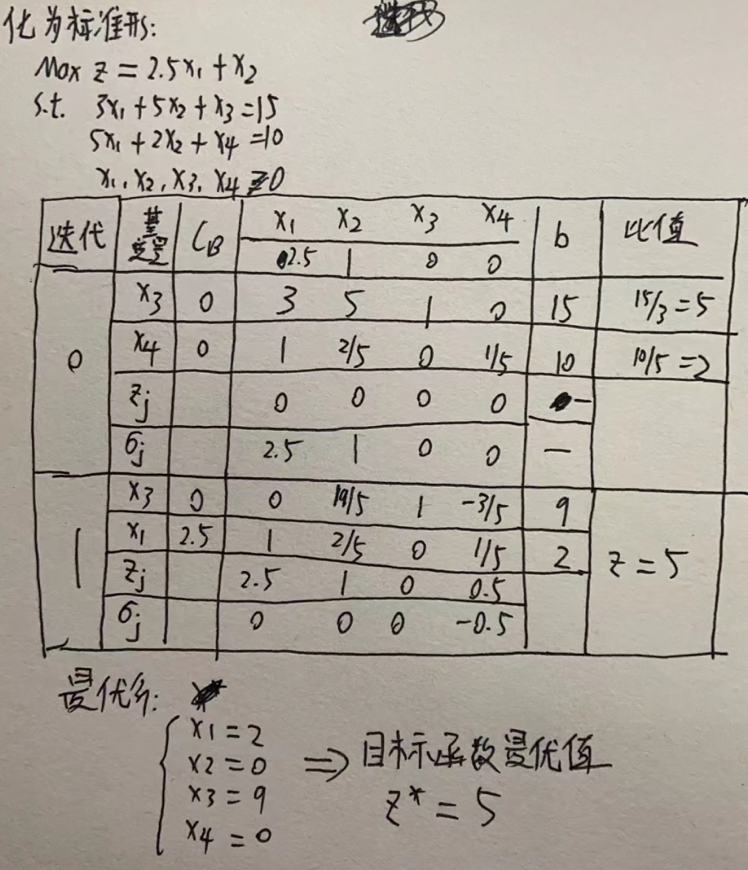 化为标准形:
Max z = 2.5x₁ + x₂
s.t. 3x₁ + 5x₂ + x₃ = 15
5x₁ + 2x₂ + x₄ = 10
x₁, x₂, x₃, x₄ ≥ 0
迭代 基变量 C_B x₁ x₂ x₃ x₄ b 比值
2.5 1 0 0
0 x₃ 0 3 5 1 0 15 15/3=5
x₄ 0 1 2/5 0 1/5 10 10/5=2
zj 0 0 0 0 —
σj 2.5 1 0 0 —
1 x₃ 0 0 19/5 1 -3/5 9
x₁ 2.5 1 2/5 0 1/5 2 z=5
zj 2.5 1 0 0.5
σj 0 0 0 -0.5
最优解:
x1=2
x2=0 ⇒ 目标函数最优值
x3=9 z* = 5
x4=0